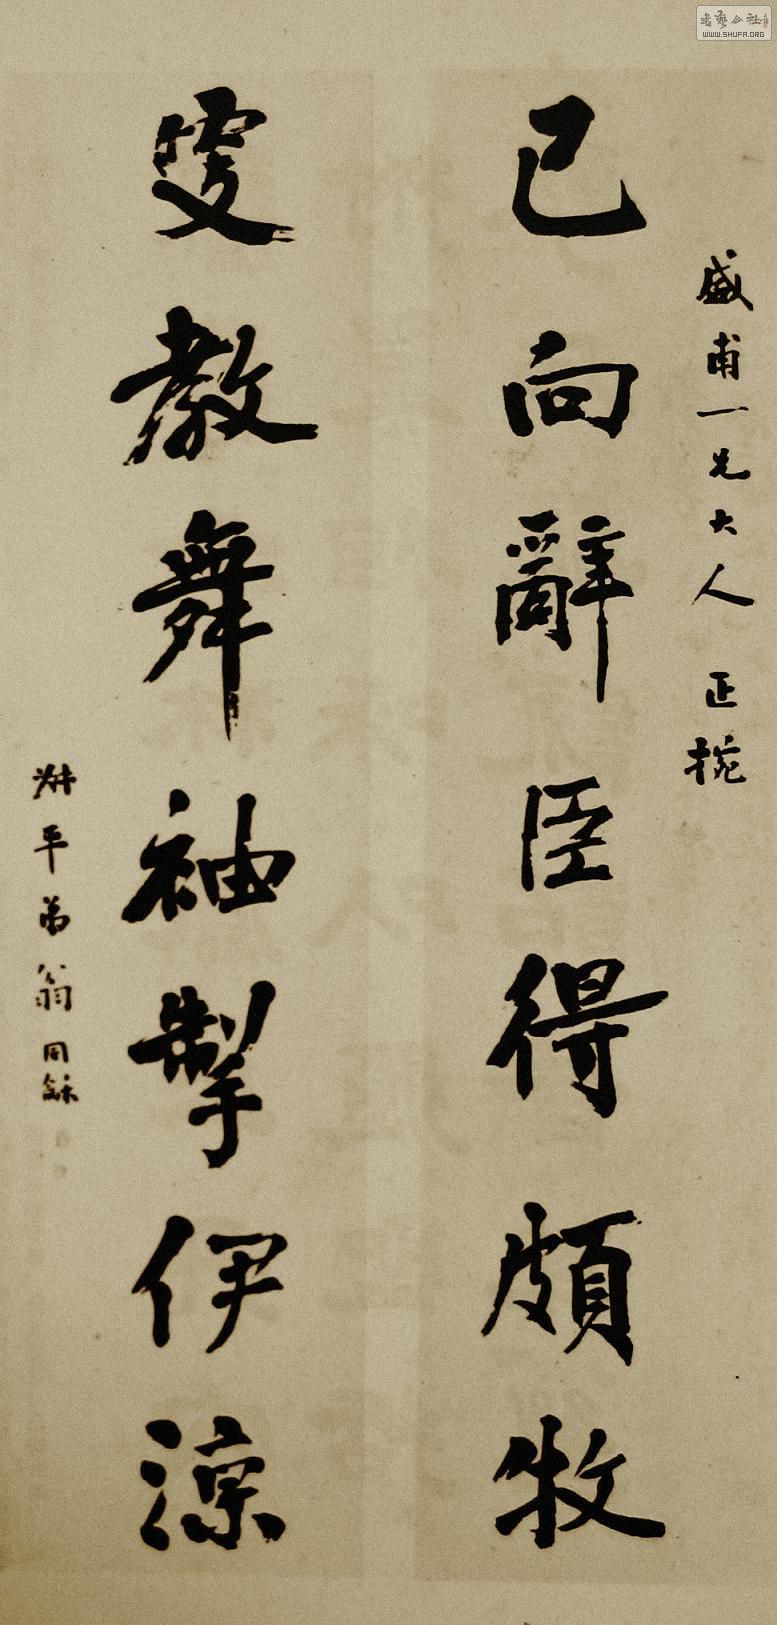 書藝公社
WWW.SHUFA.ORG
盛甫一兄大人 正捥
已向辭臣得頗牧
更教舞袖掣伊涼
叔平弟翁同龢